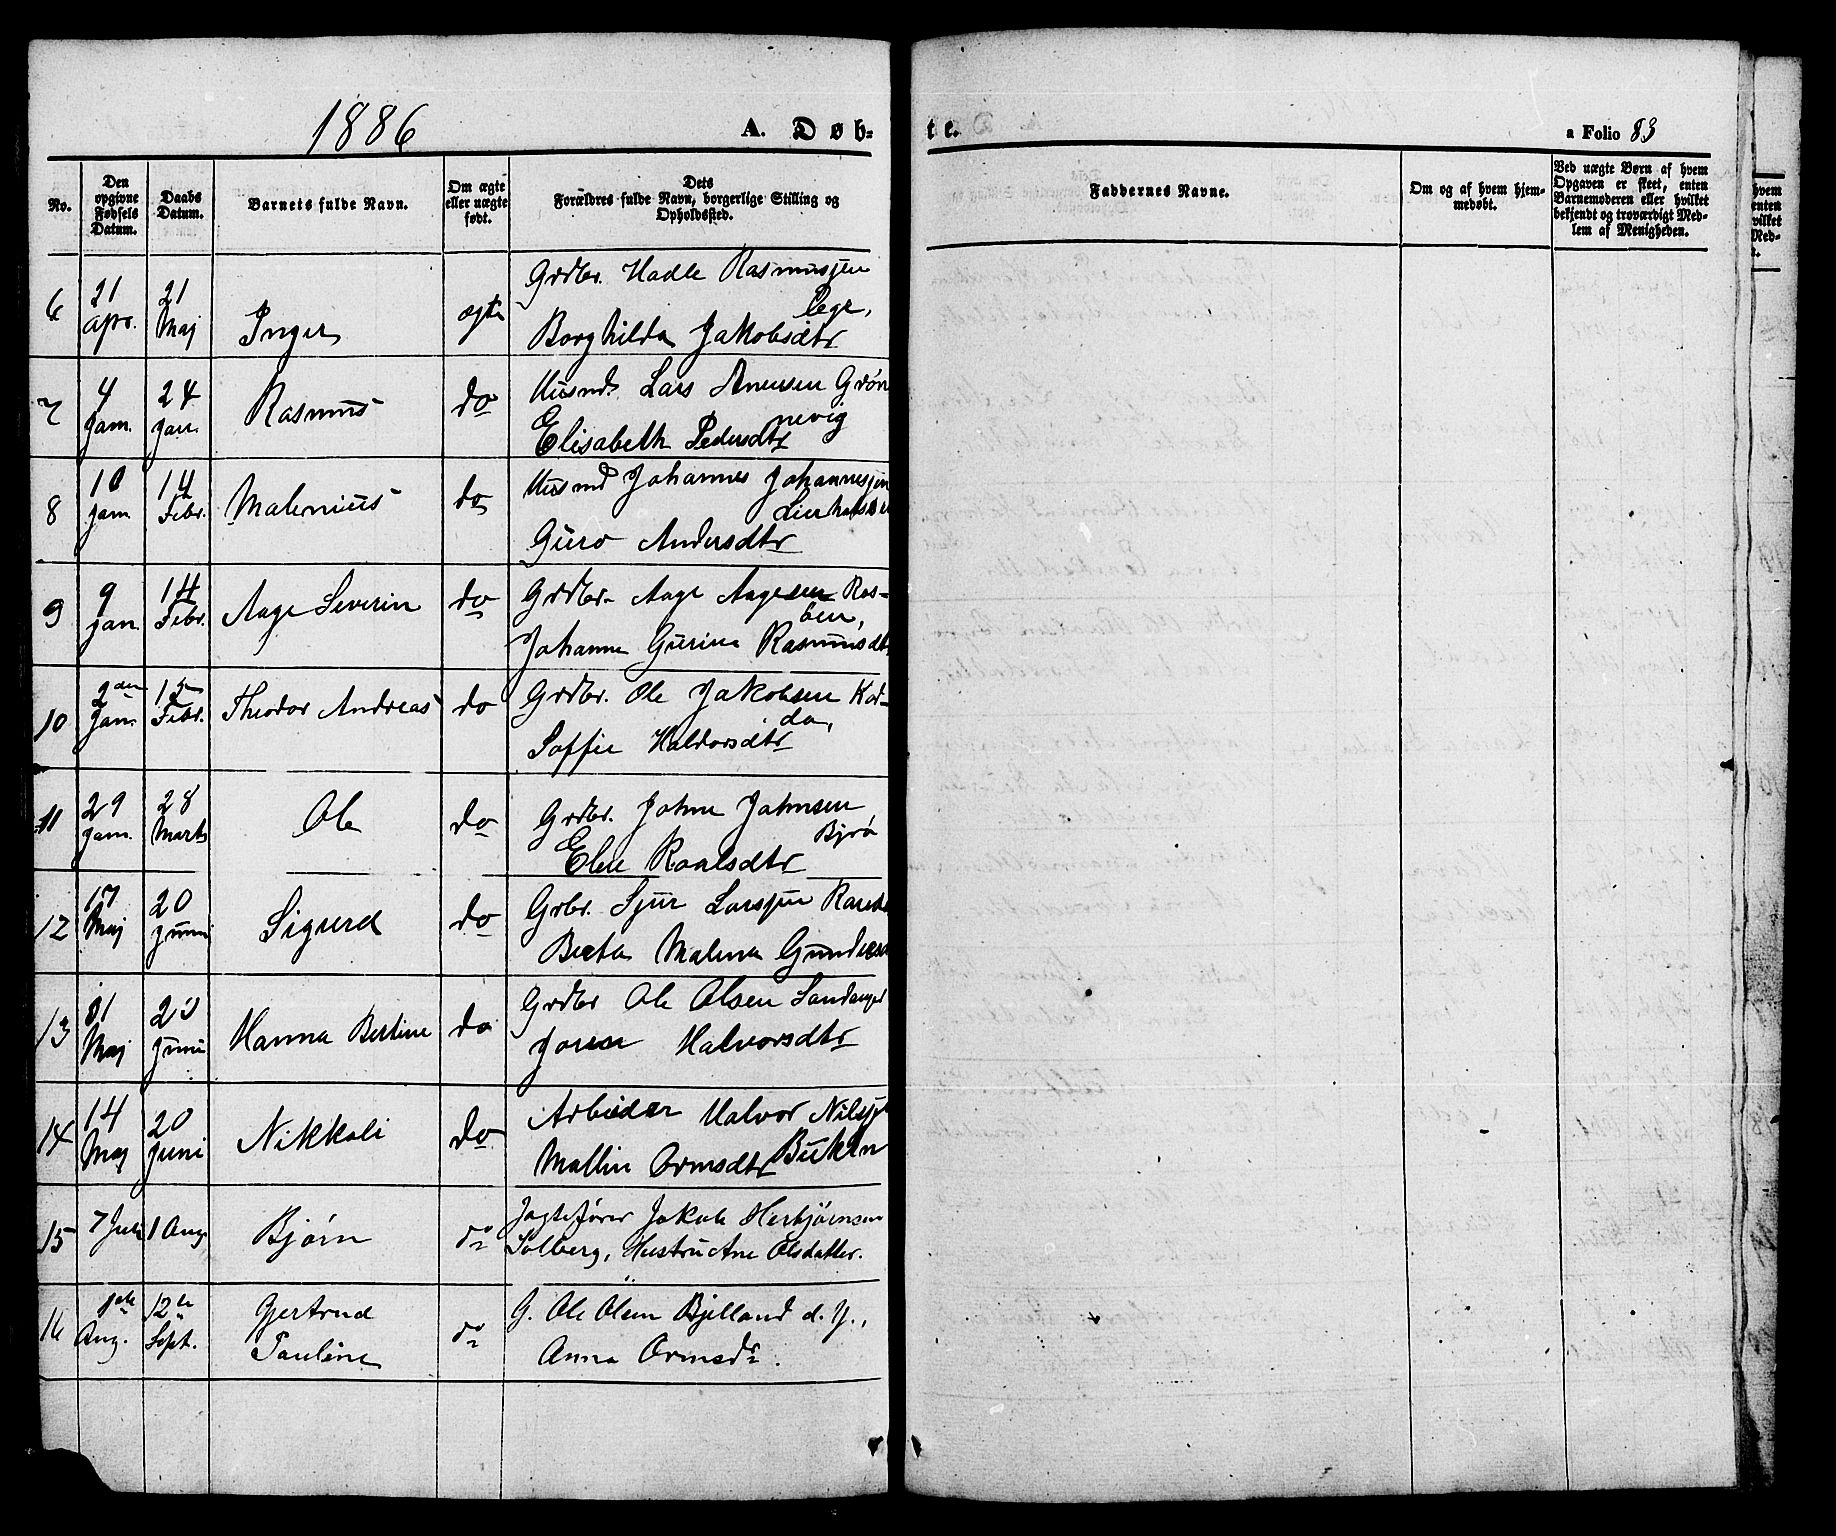 1886 A. Døb-
No.
Den opgivne Fødsels Datum.
Daabs Datum.
Barnets fulde Navn.
Om ægte eller uægte født.
Dets Forældres fulde Navn, borgerlige Stilling og Opholdssted.
6 21 apr. 21 Maj Inger ægte Grdbr. Hadle Rasmussen
Borghilda Jakobsdtr
7 4 Jan. 24 Jan. Rasmus do Husmd. Lars Anensen Grøn
nevig
Elisabeth Pedersdtr
8 10 Jan 14 Febr. Malenius do Husmd Johannes Johannesjen
Guro Andersdtr
9 9 Jan. 14 Febr. Aage Severin do Grdbr. Aage Aagesen Ros-
ben,
Johanne Gurine Rasmusdtr
10 2den Jan. Febr. Theodor Andreas do Grdbr. Ole Jakobsen Kal-
da,
Soffie Haldorsdtr
11 29 Jan. 28 Marts Ole do Grdbr. John Johnsen
Bjrø
Elen Roalsdtr
12 17 Maj 20 Juni Sigurd do Grbr. Sjur Larsjen
Berta Malena
13 31 Maj 20 Juni Hanna Bertine do Grdbr Ole Olsen Sandanger
Halvorsdtr
14 14 Maj 20 Juni Nikkoli do Arbeider Halvor Nilsjen
Mallin Ormsdtr Buken
15 7 Juli 1 Aug. Bjørn do Jagtefører Jakob Herbjørnsen
Solberg, Hustru Ane Olsdatter.
16 1ste Aug. 12te Sept. Gjertrud do G. Ole Olsen Bjelland d. Y.,
Pauline Anna Ormsdr.
te. a Folio 83
Faddernes Navne.
Om og af hvem hjem-
medøbt.
Ved uægte Børn af hvem
Opgaven er skeet, enten
Barnemoderen eller hvilket
bekjendt og troværdigt Med-
lem af Menigheden.
hvem
enten
hvilket
Med-